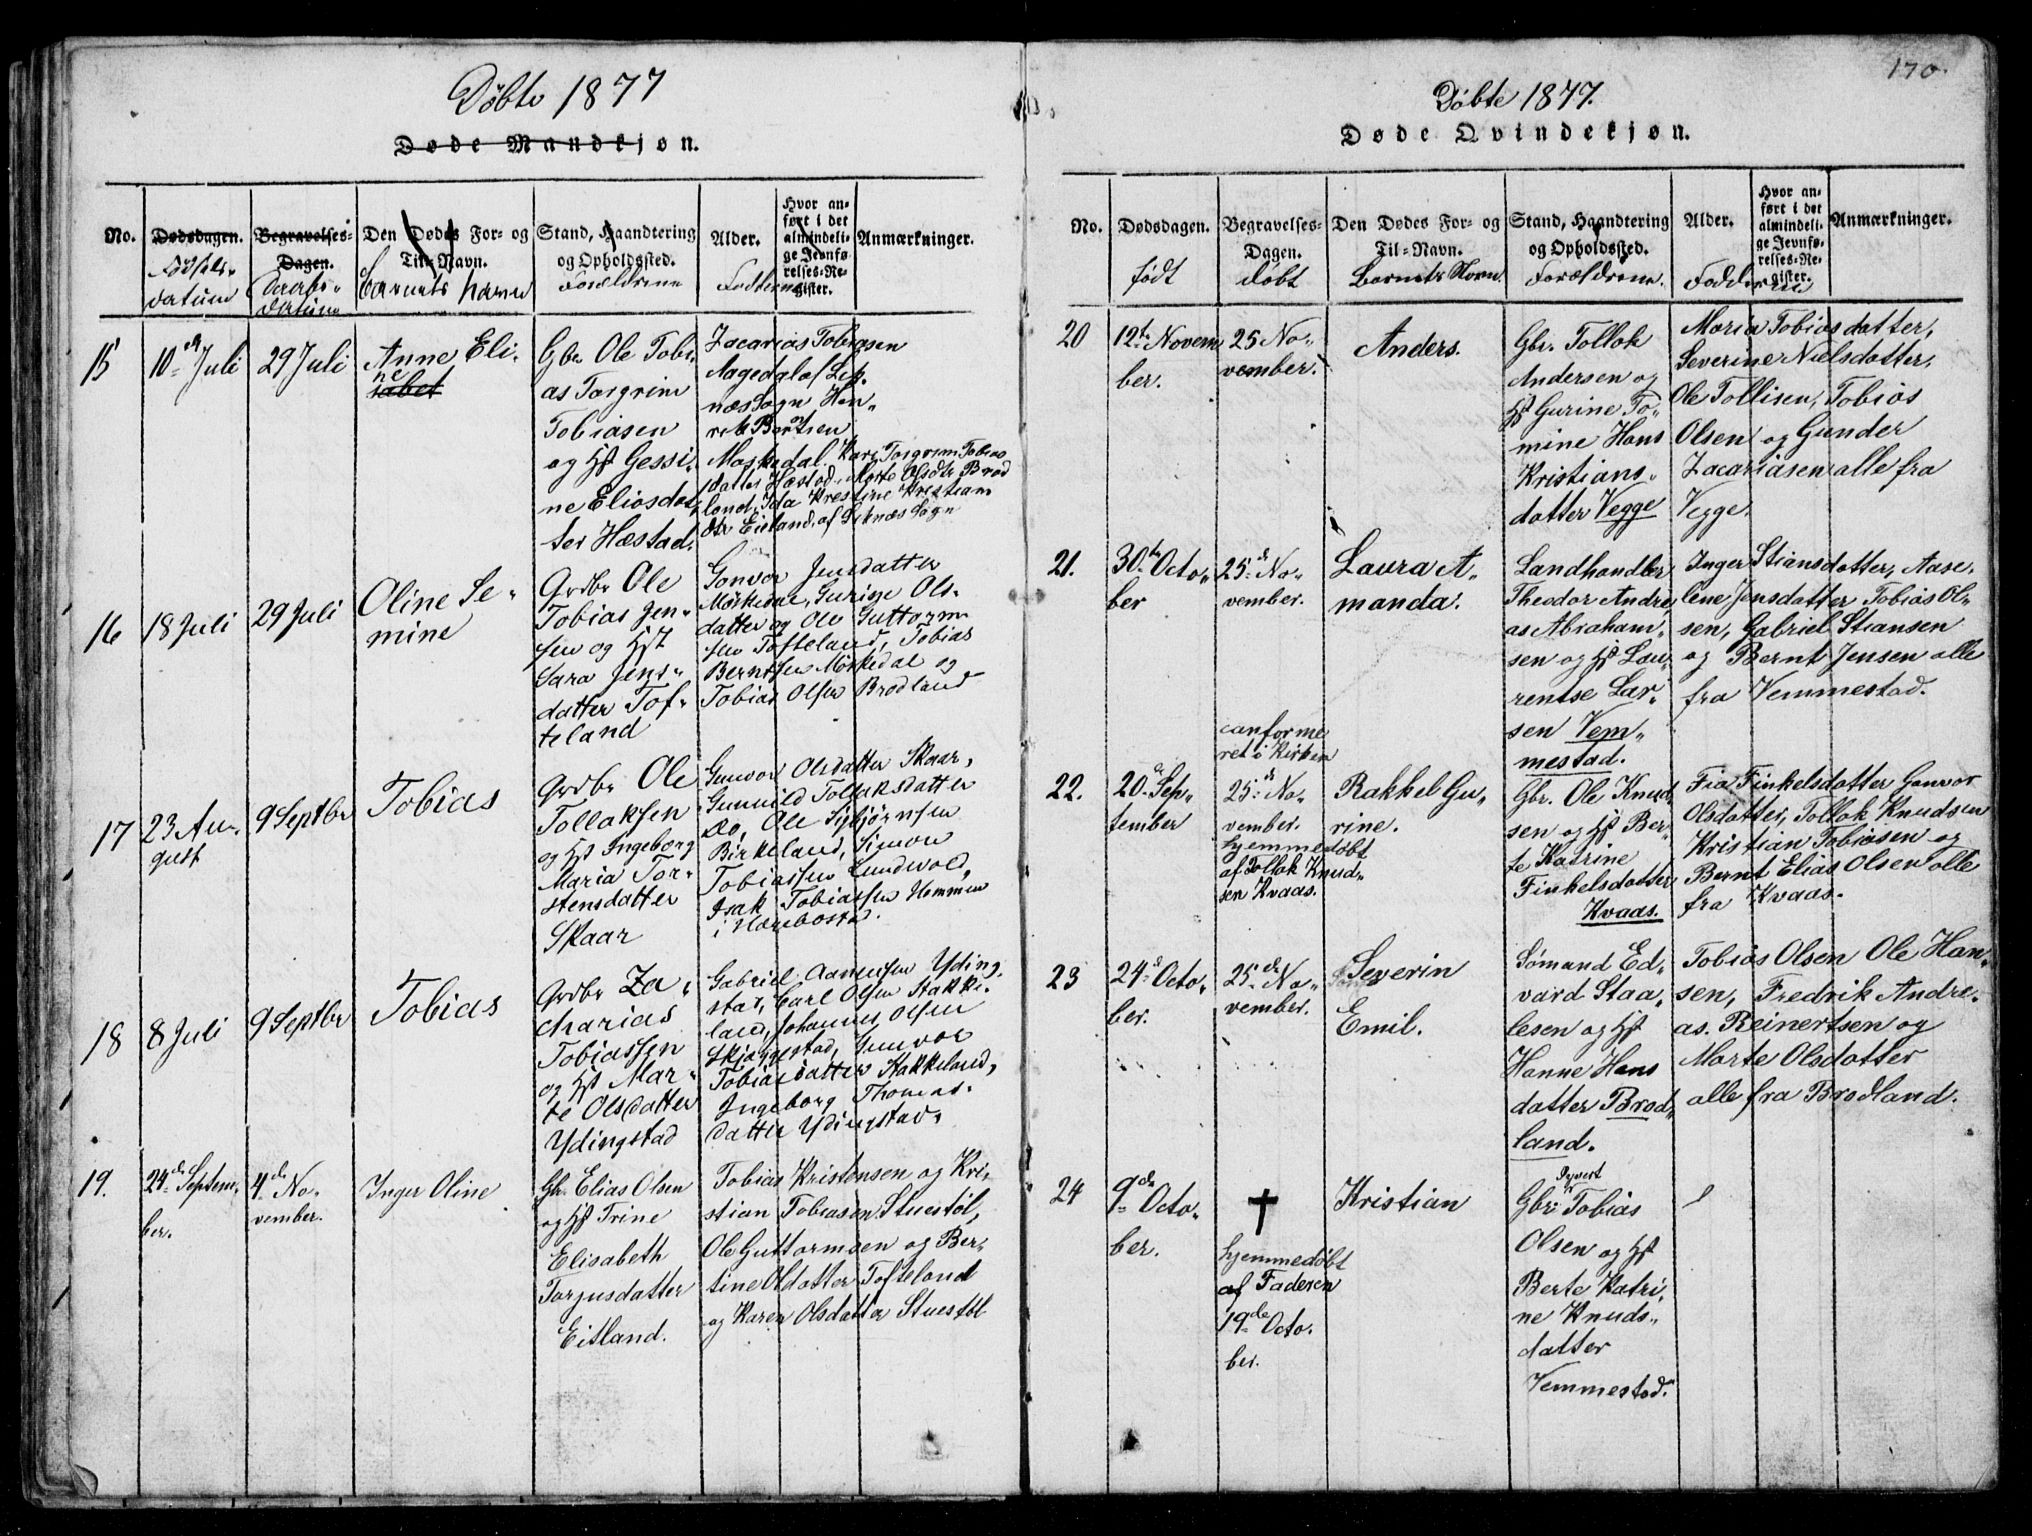 Døbte 1877
Døde Mandkjøn.
No.
Dødsdagen.
Fødsels-
datum
Begravelses-
Dagen.
Daabs-
datum
Den Dødes For- og
Til-Navn.
Barnets Navn
Stand, Haandtering
og Opholdssted.
Forældrene
Alder.
Fadderne
Hvor an-
ført i det
almindeli-
ge Jevnfø-
relses-Re-
gister.
Anmærkninger.
15
10de Juli
29 Juli
Anne Eli-
ne
sabet
Gbr. Ole Tobi-
as Torgrim
Tobiasen
og Hst Gessi-
ne Eliasdat-
ter Hæstad.
Zacarias Tobiasen
Aagedal af Lik-
næs Sogn Hen-
rik Berntsen
Møskedal. Kari Torgrim Tobias
datter Hæstad, Marte Olsdtr Brød
land, Ida Krestine Kristians
dtr Eitland, af Liknæs Sogn
16
18 Juli
29 Juli
Oline Se-
mine
Grdbr Ole
Tobias Jen-
sen og Hst
Sara Jens-
datter Tof-
teland
Gonvor Jensdatter
Møskedal, Gurine Ols-
datter og Ole Guttorm-
sen Tofteland, Tobias
Berntsen Møskedal og
Tobias Olsen Brødland
17
23 Au-
gust
9 Septbr
Tobias
Grdbr Ole
Tollaksen
og Hst Ingeborg
Maria Tor-
stensdatter
Skaar
Gunvor Olsdatter Skaar,
Gunuld Tollaksdatter
do, Ole Sybjørnsen
Birkeland, Simon
Tobiassen Lundvold,
Isak Tobiassen Hommen
i Hærebostad.
18
8 Juli
9 Septbr
Tobias
Grdbr Za-
charias
Tobiassen
og Hst Mar-
te Olsdatter
Ydingstad
Gabriel Aanensen Yding-
stad, Carl Olsen Stakke-
land, Johannes Olsen
Skjæggestad, Gunvor
Tobiasdatter Stakkeland,
Ingeborg Thomas-
datter Ydingstad
19.
24de Septem-
ber.
4de No-
vember.
Inger Oline
Gbr. Elias Olsen
og Hst Trine
Elisabeth
Torjusdatter
Eitland.
Tobias Kristensen og Kri-
stian Tobiasen Stuestøl,
Ole Guttormsen og Ber-
tine Olsdatter Tofteland
og Karen Olsdatter Stuestøl
170.
Døbte 1877.
Døde Qvindekjøn.
No.
Dødsdagen.
født
Begravelses-
Dagen.
døbt
Den Dødes For- og
Til-Navn.
Barnets Navn
Stand, Haandtering
og Opholdssted.
Forældrene.
Alder.
Fadderne
Hvor an-
ført i det
almindeli-
ge Jevnfø-
relses-Re-
gister.
Anmærkninger.
20
12te Novem
ber.
25 No-
vember.
Anders.
Gbr. Tollak
Andersen og
Hst Gurine To-
mine Hans
Kristians-
datter Vegge
Maria Tobias datter,
Severine Nielsdatter,
Ole Tollisen, Tobias
Olsen og Gunder
Zacariasen alle fra
Vegge.
21.
30te Octo-
ber
25de No-
vember.
Laura A-
manda.
Landhandler
Theodor Andre
as Abraham-
sen og Hst Lau-
rentse Lar-
sen Vem-
mestad.
Inger Stiansdatter, Aase-
line Jensdatter Tobias Ol-
sen, Gabriel Stiansen
og Bernt Jensen alle
fra Vemmestad.
22.
20de Sep-
tember
canforme
ret i Kirken
25de No-
vember.
hjemmedøbt
af Tollak Knud-
sen Kvaas.
Rakkel Gu-
rine.
Gbr. Ole Knud-
sen og Hst Ber-
te Katrine
Finkelsdatter
Kvaas.
Fia Finkelsdatter Gonvor
Olsdatter, Tollak Knudsen
Kristian Tobiasen og
Bernt Elias Olsen alle
fra Kvaas.
23
24de Octo-
ber.
25de No-
vember.
Severin
Emil.
Sømand Ed-
vard Staa-
lesen og Hst
Hanne Hans
datter Brød-
land.
Tobias Olsen Ole Han-
sen, Fredrik Andre-
as. Reinertsen og
Marte Olsdatter
alle fra Brødland.
24
9de Octo-
ber.
†
hjemmedøbt
af Faderen
19de Octo-
ber.
Kristian
Syvert
Gbr. Tobias
Olsen og Hst
Berte Katri-
ne Knuds-
datter
Vemmestad.